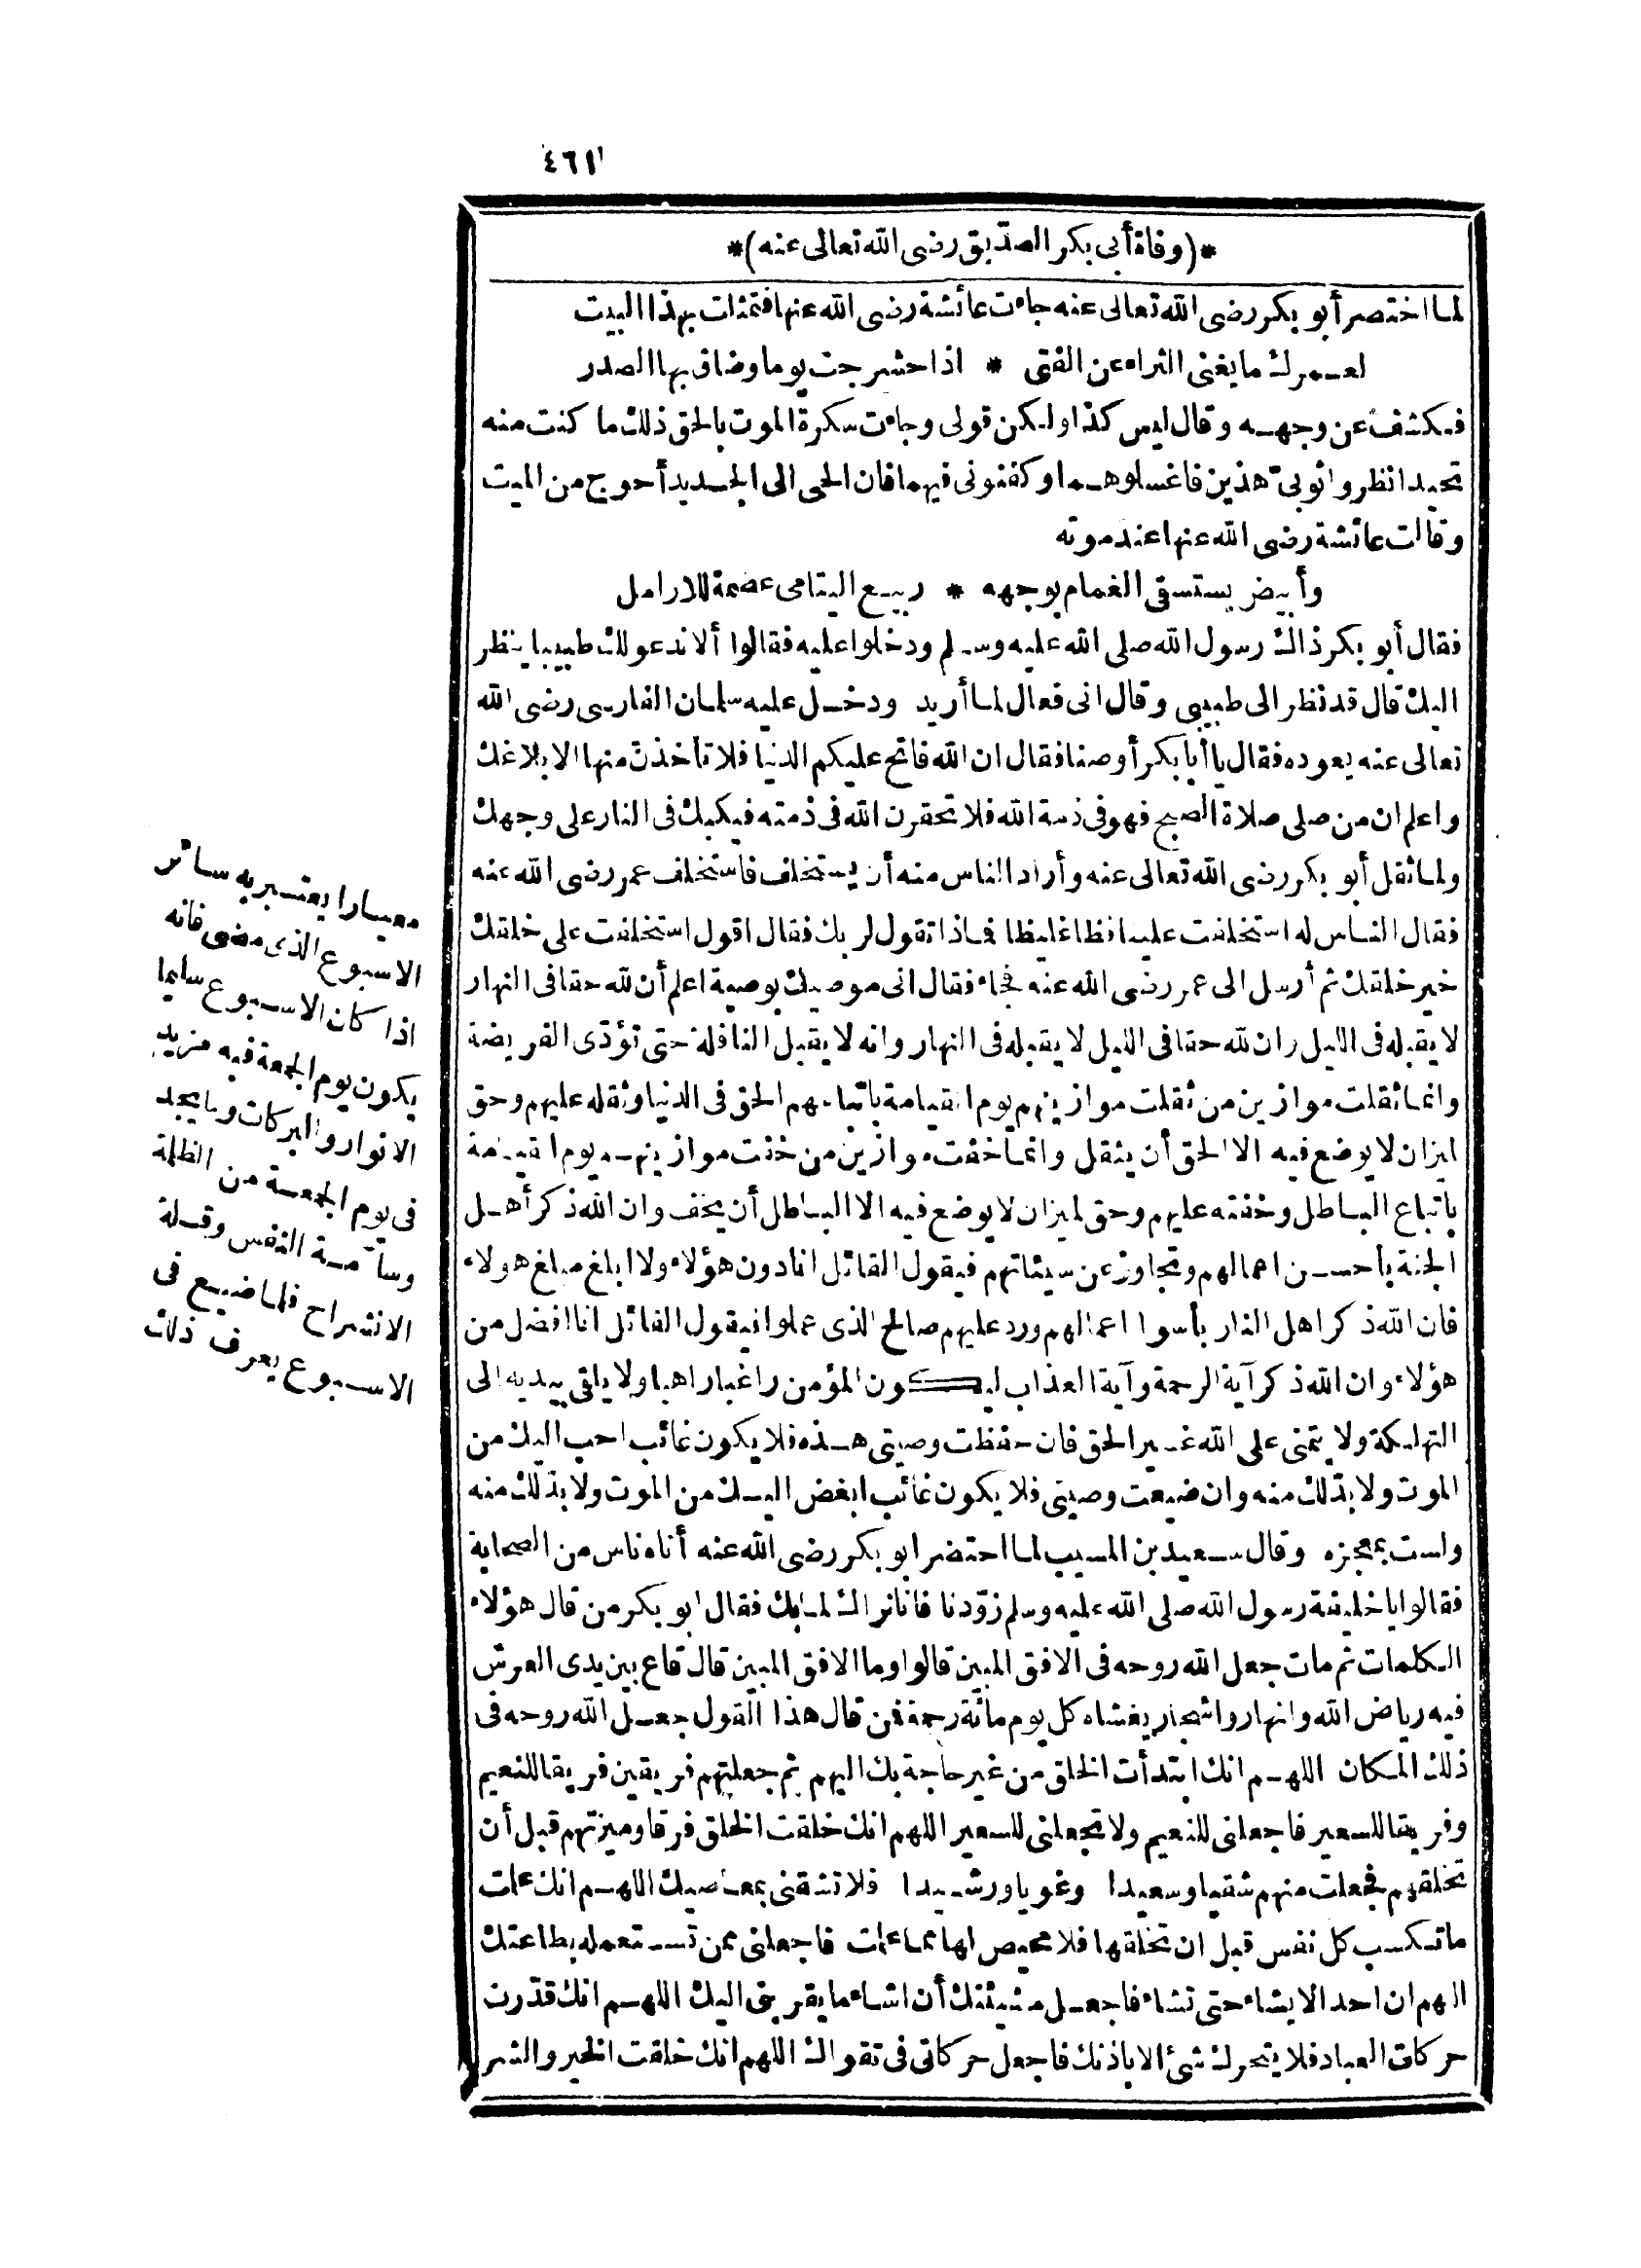 ٤٦١
*(وفاة أبى بكر الصدّيق رضى الله تعالى عنه)*
لما اختصر أبو بكر رضى الله تعالى عنه جاءت عائشة رضى الله عنها فتمثلت بهذا البيت
لعمرك ما يغنى الثراء عن الفتى * اذا حشرجت يوما وضاق بها الصدر
فكشف عن وجهه وقال ليس كذا ولكن قولى وجاءت سكرة الموت بالحق ذلك ما كنت منه
تحيد انظروا ثوبىّ هذين فاغسلوهما وكفنونى فيهما فان الحى الى الجديد أحوج من الميت
وقالت عائشة رضى الله عنها عند موته
وأبيض يستسقى الغمام بوجهه * ربيع اليتامى عصمة للارامل
فقال أبو بكر ذاك رسول الله صلى الله عليه وسلم ودخلوا عليه فقالوا ألا ندعو لك طبيبا ينظر
اليك قال قد نظر الى طبيبى وقال انى فعال لما أريد ودخل عليه سلمان الفارسى رضى الله
تعالى عنه يعوده فقال يا أبا بكر أوصنا فقال ان الله فاتح عليكم الدنيا فلا تأخذن منها الا بلاغك
واعلم ان من صلى صلاة الصبح فهو فى ذمة الله فلا تحقرن الله فى ذمته فيكبك فى النار على وجهك
ولما ثقل أبو بكر رضى الله تعالى عنه وأراد الناس منه أن يستخلف فاستخلف عمر رضى الله عنه
فقال الناس له استخلفت علينا فظا غليظا فماذا تقول لربك فقال اقول استخلفت على خلقك
خير خلقك ثم أرسل الى عمر رضى الله عنه فجاء فقال انى موصيك بوصية اعلم أن لله حقا فى النهار
لا يقبله فى الليل وان لله حقا فى الليل لا يقبله فى النهار وانه لا يقبل النافلة حتى تؤدّى الفريضة
وانما ثقلت موازين من ثقلت موازينهم يوم القيامة باتباعهم الحق فى الدنيا وثقله عليهم وحق
لميزان لا يوضع فيه الا الحق أن يثقل وانما خفت موازين من خفت موازينهم يوم القيامة
باتباع الباطل وخفته عليهم وحق لميزان لا يوضع فيه الا الباطل أن يخف وان الله ذكر أهل
الجنة بأحسن اعمالهم وتجاوز عن سيئاتهم فيقول القائل انا دون هؤلاء ولا ابلغ مبلغ هولاء
فان الله ذكر اهل النار بأسوا اعمالهم ورد عليهم صالح الذى عملوا فيقول القائل انا افضل من
هؤلاء وان الله ذكر آية الرحمة وآية العذاب ليكون المؤمن راغبا راهبا ولا يلقى بيديه الى
التهلكة ولا يتمنى على الله غير الحق فان حفظت وصيتى هذه فلا يكون غائب احب اليك من
الموت ولا بدّ لك منه وان ضيعت وصيتى فلا يكون غائب ابغض اليك من الموت ولا بدّ لك منه
ولست بمعجزه وقال سعيد بن المسيب لما احتضر ابو بكر رضى الله عنه أتاه ناس من الصحابة
فقالوا يا خليفة رسول الله صلى الله عليه وسلم زوّدنا فانا نراك لما بك فقال ابو بكر من قال هؤلاء
الكلمات ثم مات جعل الله روحه فى الافق المبين قالوا وما الافق المبين قال قاع بين يدى العرش
فيه رياض الله وانهار واشجار يغشاه كل يوم مائة رحمة فمن قال هذا القول جعل الله روحه فى
ذلك المكان اللهم انك ابتدأت الخلق من غير حاجة بك اليهم ثم جعلتهم فريقين فريقا للنعيم
وفريقا للسعير فاجعلنى للنعيم ولا تجعلنى للسعير اللهم انك خلقت الخلق فرقا وميزتهم قبل أن
تخلقهم فجعلت منهم شقيا وسعيدا وغويا ورشيدا فلا تشقنى بمعاصيك اللهم انك علمت
ما تكسب كل نفس قبل ان تخلقها فلا محيص لها مما علمت فاجعلنى ممن تستعمله بطاعتك
اللهم ان احد الا يشاء حتى تشاء فاجعل مشيئتك أن اشاء ما يقربنى اليك اللهم انك قدّرت
حركات العباد فلا يتحرك شئ الا باذنك فاجعل حركاتى فى تقواك اللهم انك خلقت الخير والشر
معيارا يعتبر به سائر
الاسبوع الذى مضى فانه
اذا كان الاسبوع سليما
يكون يوم الجمعة فيه مزيد
الانوار والبركات وما يجد
فى يوم الجمعة من الظلمة
وسآمة النفس وقلة
الانشراح فلما ضيع فى
الاسبوع يعرف ذلك